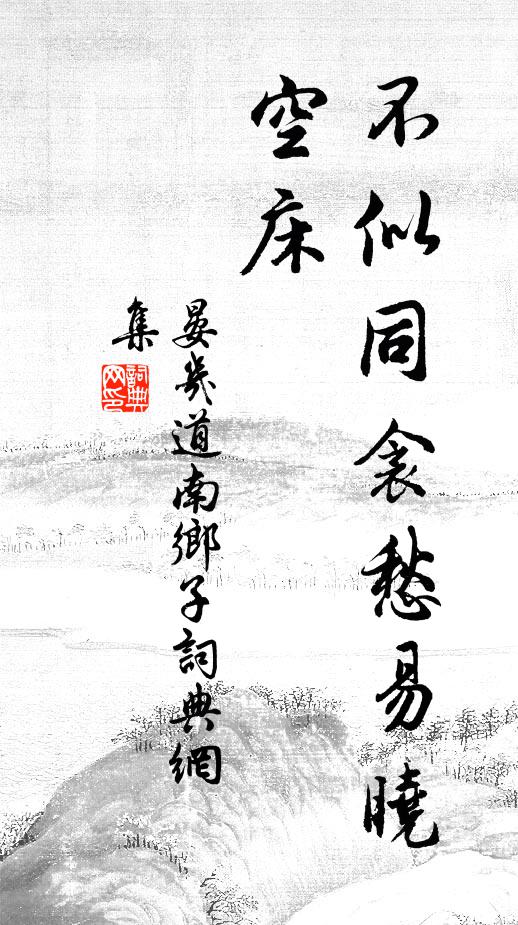 不似同衾愁易曉
空床
晏幾道南鄉子詞典網
集
詞典網印